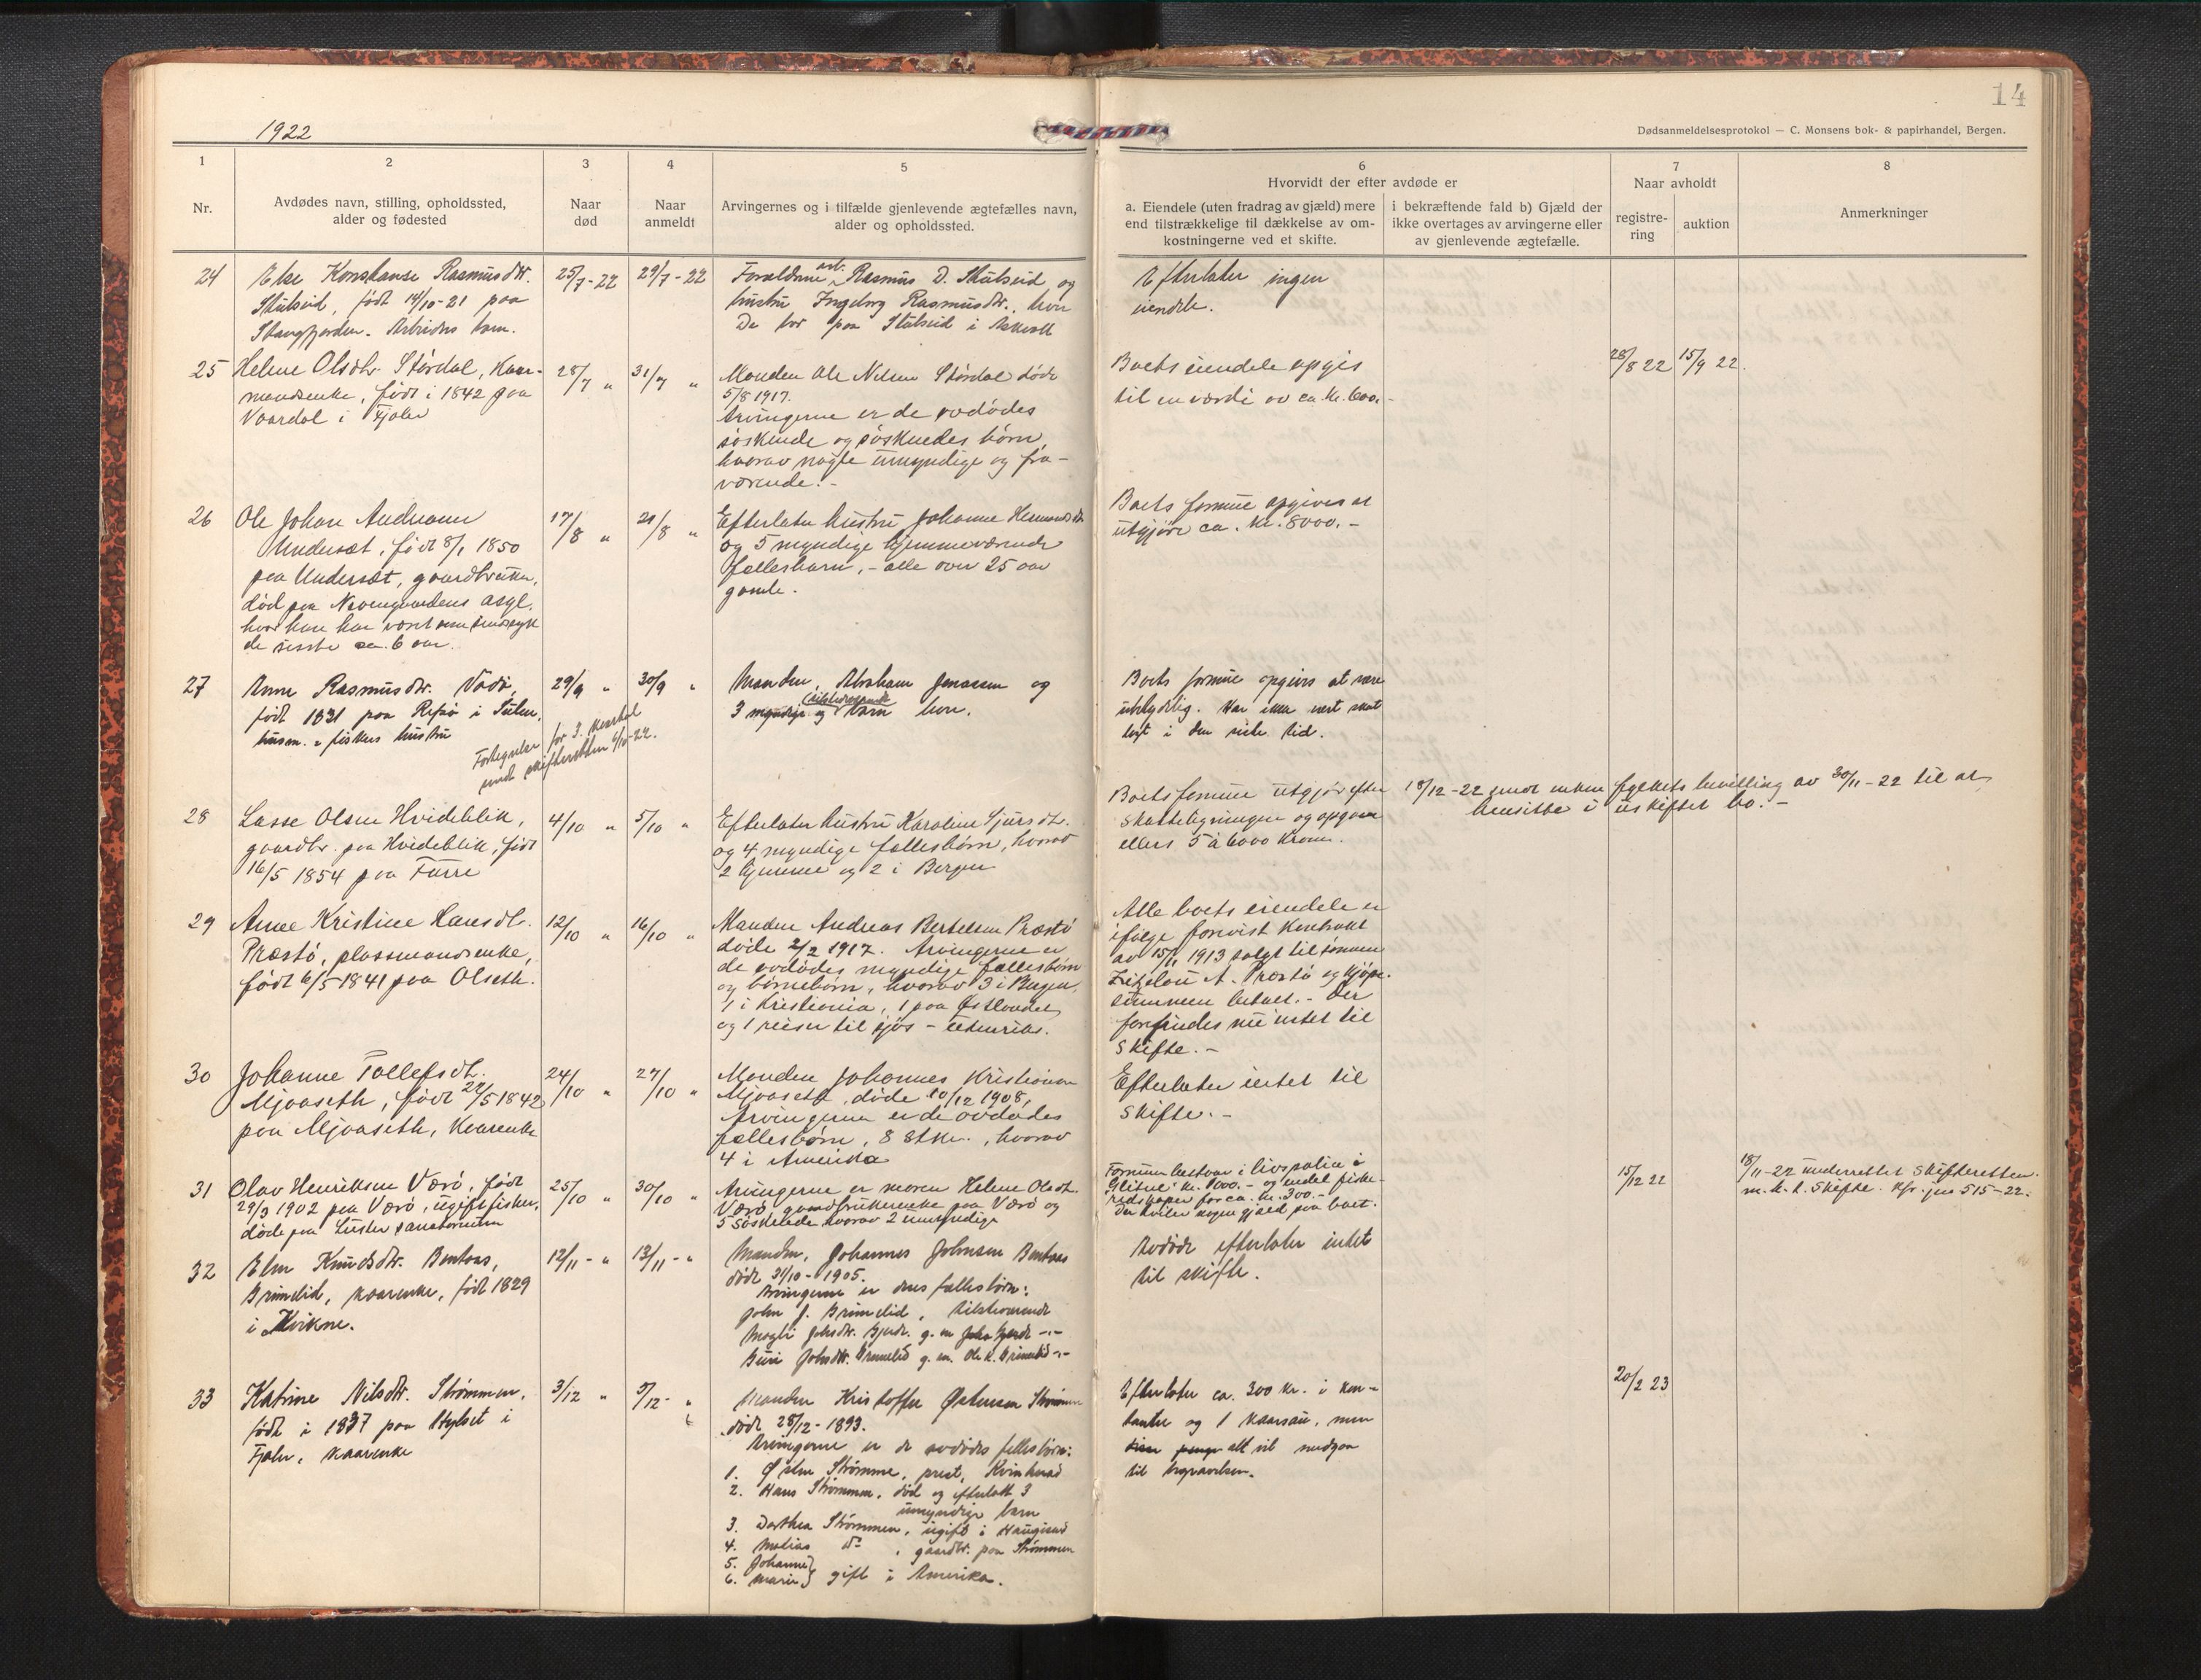 14
1922
Dødsanmeldelsesprotokol — C. Monsens bok- & papirhandel, Bergen.
1
2
3
4
5
6
7
8
Nr.
Avdødes navn, stilling, opholdssted,
alder og fødested
Naar
død
Naar
anmeldt
Arvingernes og i tilfælde gjenlevende ægtefælles navn,
alder og opholdssted.
Hvorvidt der efter avdøde er
a. Eiendele (uten fradrag av gjæld) mere
end tilstrækkelige til dækkelse av om-
kostningerne ved et skifte.
i bekræftende fald b) Gjæld der
ikke overtages av arvingerne eller
av gjenlevende ægtefælle.
Naar avholdt
registre-
ring
auktion
Anmerkninger
24
Else Konstanse Rasmusdtr.
Stubseid, født 14/10-21 paa
Stangfjorden. Arbeiders barn.
25/7-22
29/7-22
Forældrene arb. Rasmus D. Stubseid og
hustru Ingeborg Rasmusdtr.
De bor paa Stubseid i Askvoll
Efterlater ingen
eiendele.
25
Helene Olsdtr. Stórdal, Kaar-
mandsenke, født i 1842 paa
Vaardal i Fjaler
28/7 "
31/7 "
Manden Ole Nilsen Stórdal døde
5/8 1917.
Arvingerne er de avdødes
søskende og søskendes børn,
hvorav nogle umyndige og fra-
værende. -
Boets eiendele opgis
til en værdi av ca. kr. 600,-
28/8 22
15/9 22.
26
Ole Johan Andreasen
Undersæt, født 8/1 1850
paa Undersæt, gaardbruker,
død paa Nevengaardens asyl,
hvor han har været som sindssyk
de sisste ca. 6 aar.
17/8 "
21/8 "
Efterlater hustru Johanne
og 5 myndige hjemmeværende
fællesbarn, - alle over 25 aar
gamle.
Boets formue opgives at
utgjøre ca. kr. 8000. -
27
Anne Rasmusdtr.
født 1831 paa Refsø i Sulen,
husm. & fiskers hustru
Fortegnelse for 3. kvartal
sendt skifteretten 6/10-22.
29/9 "
30/9 "
Manden, Abraham Jonassen og
3 myndige og tilstedeværende barn
Boets formue opgives at være
ubetydelig. Har ikke vært skat
lagt i den siste tid.
28
Lasse Olsen Hvideblik,
gaardbr. paa Hvideblik, født
16/5 1854 paa Furre
4/10 "
5/10 "
Efterlater hustru Karoline Sjursdtr.
og 4 myndige fællesbørn, hvorav
2 hjemme og 2 i Bergen
Boets formue utgjør efter
skatteligningen og opgave
ellers 5 à 6000 kroner.
18/12-22 sendt enken fylkets bevilling av 30/11-22 til at
hensitte i uskiftet bo. -
29
Anne Kristine Hansdtr.
Præstø, plassmandsenke,
født 6/5-1841 paa Olseth.
12/10 "
16/10 "
Manden Andreas Bertelsen Præstø
døde 2/2 1917. Arvingerne er
de avdødes myndige fællesbørn
og børnebørn, hvorav 3 i Bergen,
1 i Kristiania, 1 paa Østlandet
og 1 reiser til sjøs - utenriks.
Alle boets eiendele er
ifølge forevist kontrakt
av 15/11 1913 solgt til sønnen
A. Præstø og kjøpe-
summen betalt. - Der
forefindes nu intet til
skifte. -
30
Johanne Tollefsdtr.
Mjoaseth, født 22/5 1842
paa Mjoaseth, Kaarenke
24/10 "
27/10 "
Manden Johannes Kristiansen
Mjoaseth, døde 10/12 1908,
Arvingerne er de avdødes
fællesbørn, 8 stkr., hvorav
4 i Amerika
Efterlater intet til
skifte. -
31
Olav Henriksen Værø, født
29/3 1902 paa Værø, ugift fisker,
døde paa Luster sanatorium
25/10 "
30/10 "
Arvingerne er moren Helene Olsdtr.
Værø, gaardbrukerenke paa Værø og
5 søskende hvorav 2 umyndige
Formuen bestaar i livspolice i
"Glitne" kr. 1000.- og endel fiske-
redskaper for ca. kr. 300.-
Der hviler nogen gjæld paa boet.
15/12 22
18/11-22 underrettet skifteretten
m. h. t. skifte. Kfr. jnr 515-22.
32
Elen Knudsdtr. Bentaas,
Brimelid, kaarenke, født 1829
i Kvikne.
12/11- "
13/11- "
Manden, Johannes Johnsen Bentaas
døde 31/10-1905.
Arvingerne er deres fællesbørn:
John J. Brimelid, tilstværende
Magli Johsdtr. Gjerde. g. m. John Gjerde -"-
Guri Johsdtr. Brimelid g. m. Ole K. Brimelid -"-
Avdøde efterlater intet
til skifte.
33
Katrine Nilsdtr. Strømmen,
født i 1837 paa Hylset i
Fjaler, kaarenke
3/12 "
5/12- "
Manden Kristoffer Østensen Strømmen
døde 28/12-1893.
Arvingerne er de avdødes fellesbørn:
1. Østen Strømme, prest, Kvinherad
2. Hans Strømmen, død og efterlatt 3
umyndige barn
3. Dorthea Strømmen, ugift i Haugesund
4. Matias do , gaardbr. paa Strømmen
5. Johanne
6. Marie } gift i Amerika.
Efterlater ca. 300 kr. i kon-
tanter og 1 kaarsau, men
disse penge alt vil medgaa
til begravelsen.
20/2 23